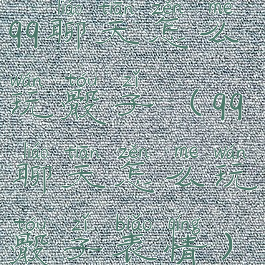 qq聊天怎么
玩骰子（qq
聊天怎么玩
骰子表情）